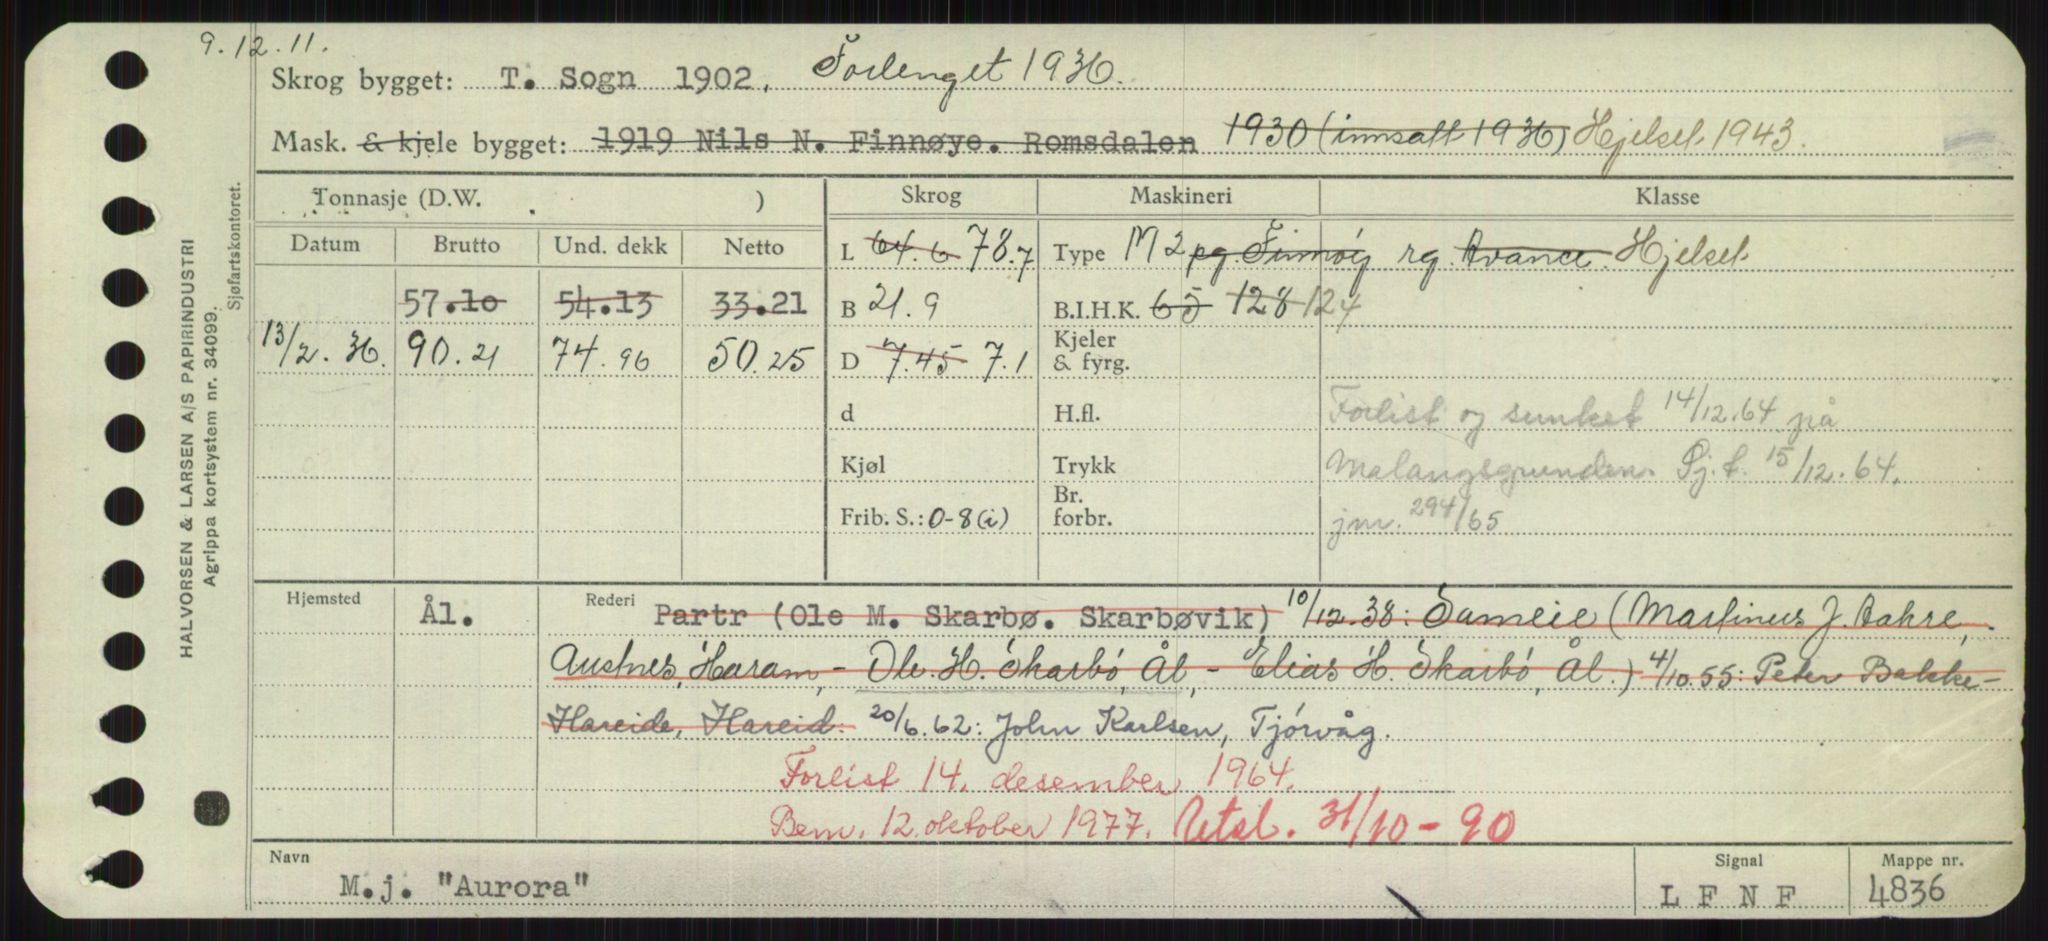 9.12.11.
Skrog bygget: T. Sogn 1902, Forlenget 1936.
Mask. & kjele bygget: 1919 Nils N. Finnøye. Romsdalen 1930 (innsatt 1936) Hjelset 1943.
Tonnasje (D.W. ) Skrog Maskineri Klasse
Datum Brutto Und. dekk Netto L 64.6 78.7 Type M 2 pg Finnøy rg. Avance. Hjelset
57.10 54.13 33.21 B 21.9 B.I.H.K. 65 128 124
13/2.36. 90.21 74.96 50.25 D 7.45 7.1 Kjeler & fyrg.
d H.fl. Forlist og sunket 14/12.64 på
Kjøl Trykk Malangsgrunden. Sj.f. 15/12.64.
Frib. S.: 0-8(i) Br. forbr. jnr. 294/65
Hjemsted Ål. Rederi Partr (Ole M. Skarbø. Skarbøvik) 10/12.38: Sameie (Martinus J. Aakre,
Austnes, Haram, - Ole H. Skarbó, Ål, - Elias H. Skarbó, Ål.) 4/10.55: Peter Bakke-
Hareide, Hareid. 20/6.62: John Karlsen, Tjórvåg.
Forlist 14. desember 1964.
Bem. 12. oktober 1977. Utsl. 31/10-90
Navn Signal Mappe nr.
M.j. "Aurora" L F N F 4836
HALVORSEN & LARSEN A/S PAPIRINDUSTRI
Agrippa kortsystem nr. 34099.
Sjøfartskontoret.